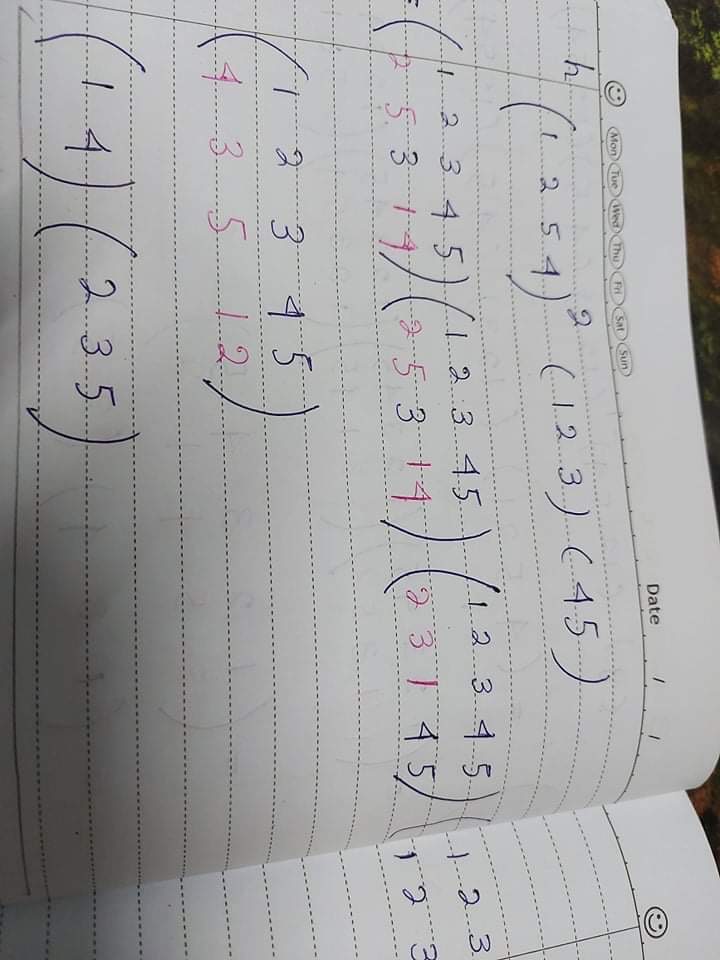 Mon Tue Wed Thu Fri Sat Sun Date / /
h (1 2 5 4)² (1 2 3) (4 5)
= (1 2 3 4 5) (1 2 3 4 5) (1 2 3 4 5) (1 2 3
2 5 3 1 4 2 5 3 1 4 2 3 1 4 5 1 2 3
(1 2 3 4 5)
4 3 5 1 2
(1 4) (2 3 5)